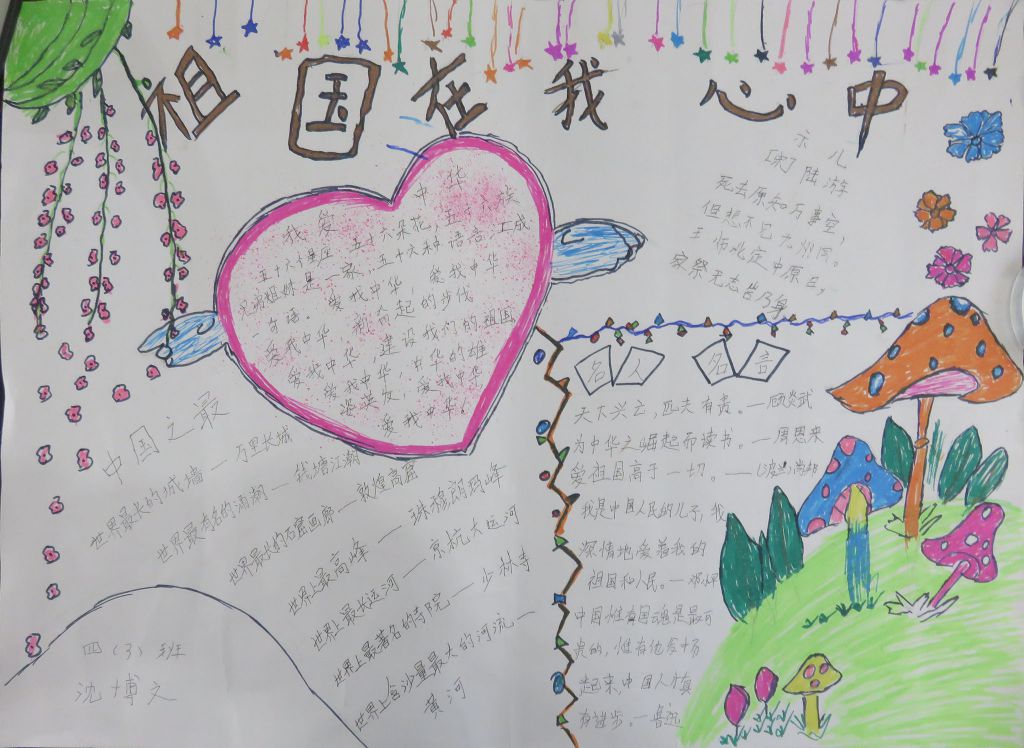 祖国在我心中
示儿
[宋]陆游
死去原知万事空,
但悲不见九州同。
王师北定中原日,
家祭无忘告乃翁
爱我中华
五十六个星座 五十六朵花,五十六族
兄弟姐妹是一家,五十六种语言,汇成
一句话。爱我中华,爱我中华
爱我中华 奋起的步伐
爱我中华,建设我们的祖国
爱我中华,中华的雄
爱我中华
爱我中华。
中国之最
世界最长的城墙—万里长城
世界最有名的涌潮—钱塘江潮
世界最大的石窟画廊—敦煌高窟
世界上最高峰—珠穆朗玛峰
世界上最长运河—京杭大运河
世界上最著名的寺院—少林寺
世界上含沙量最大的河流—
黄河
名人名言
天下兴亡,匹夫有责。—顾炎武
为中华之崛起而读书。—周恩来
爱祖国高于一切。—肖邦
我是中国人民的儿子,我
深情地爱着我的
祖国和人民。—邓小平
中国惟有国魂是最可
贵的,惟有他发扬
起来,中国人才真
有进步。—鲁迅
四(3)班
沈博文